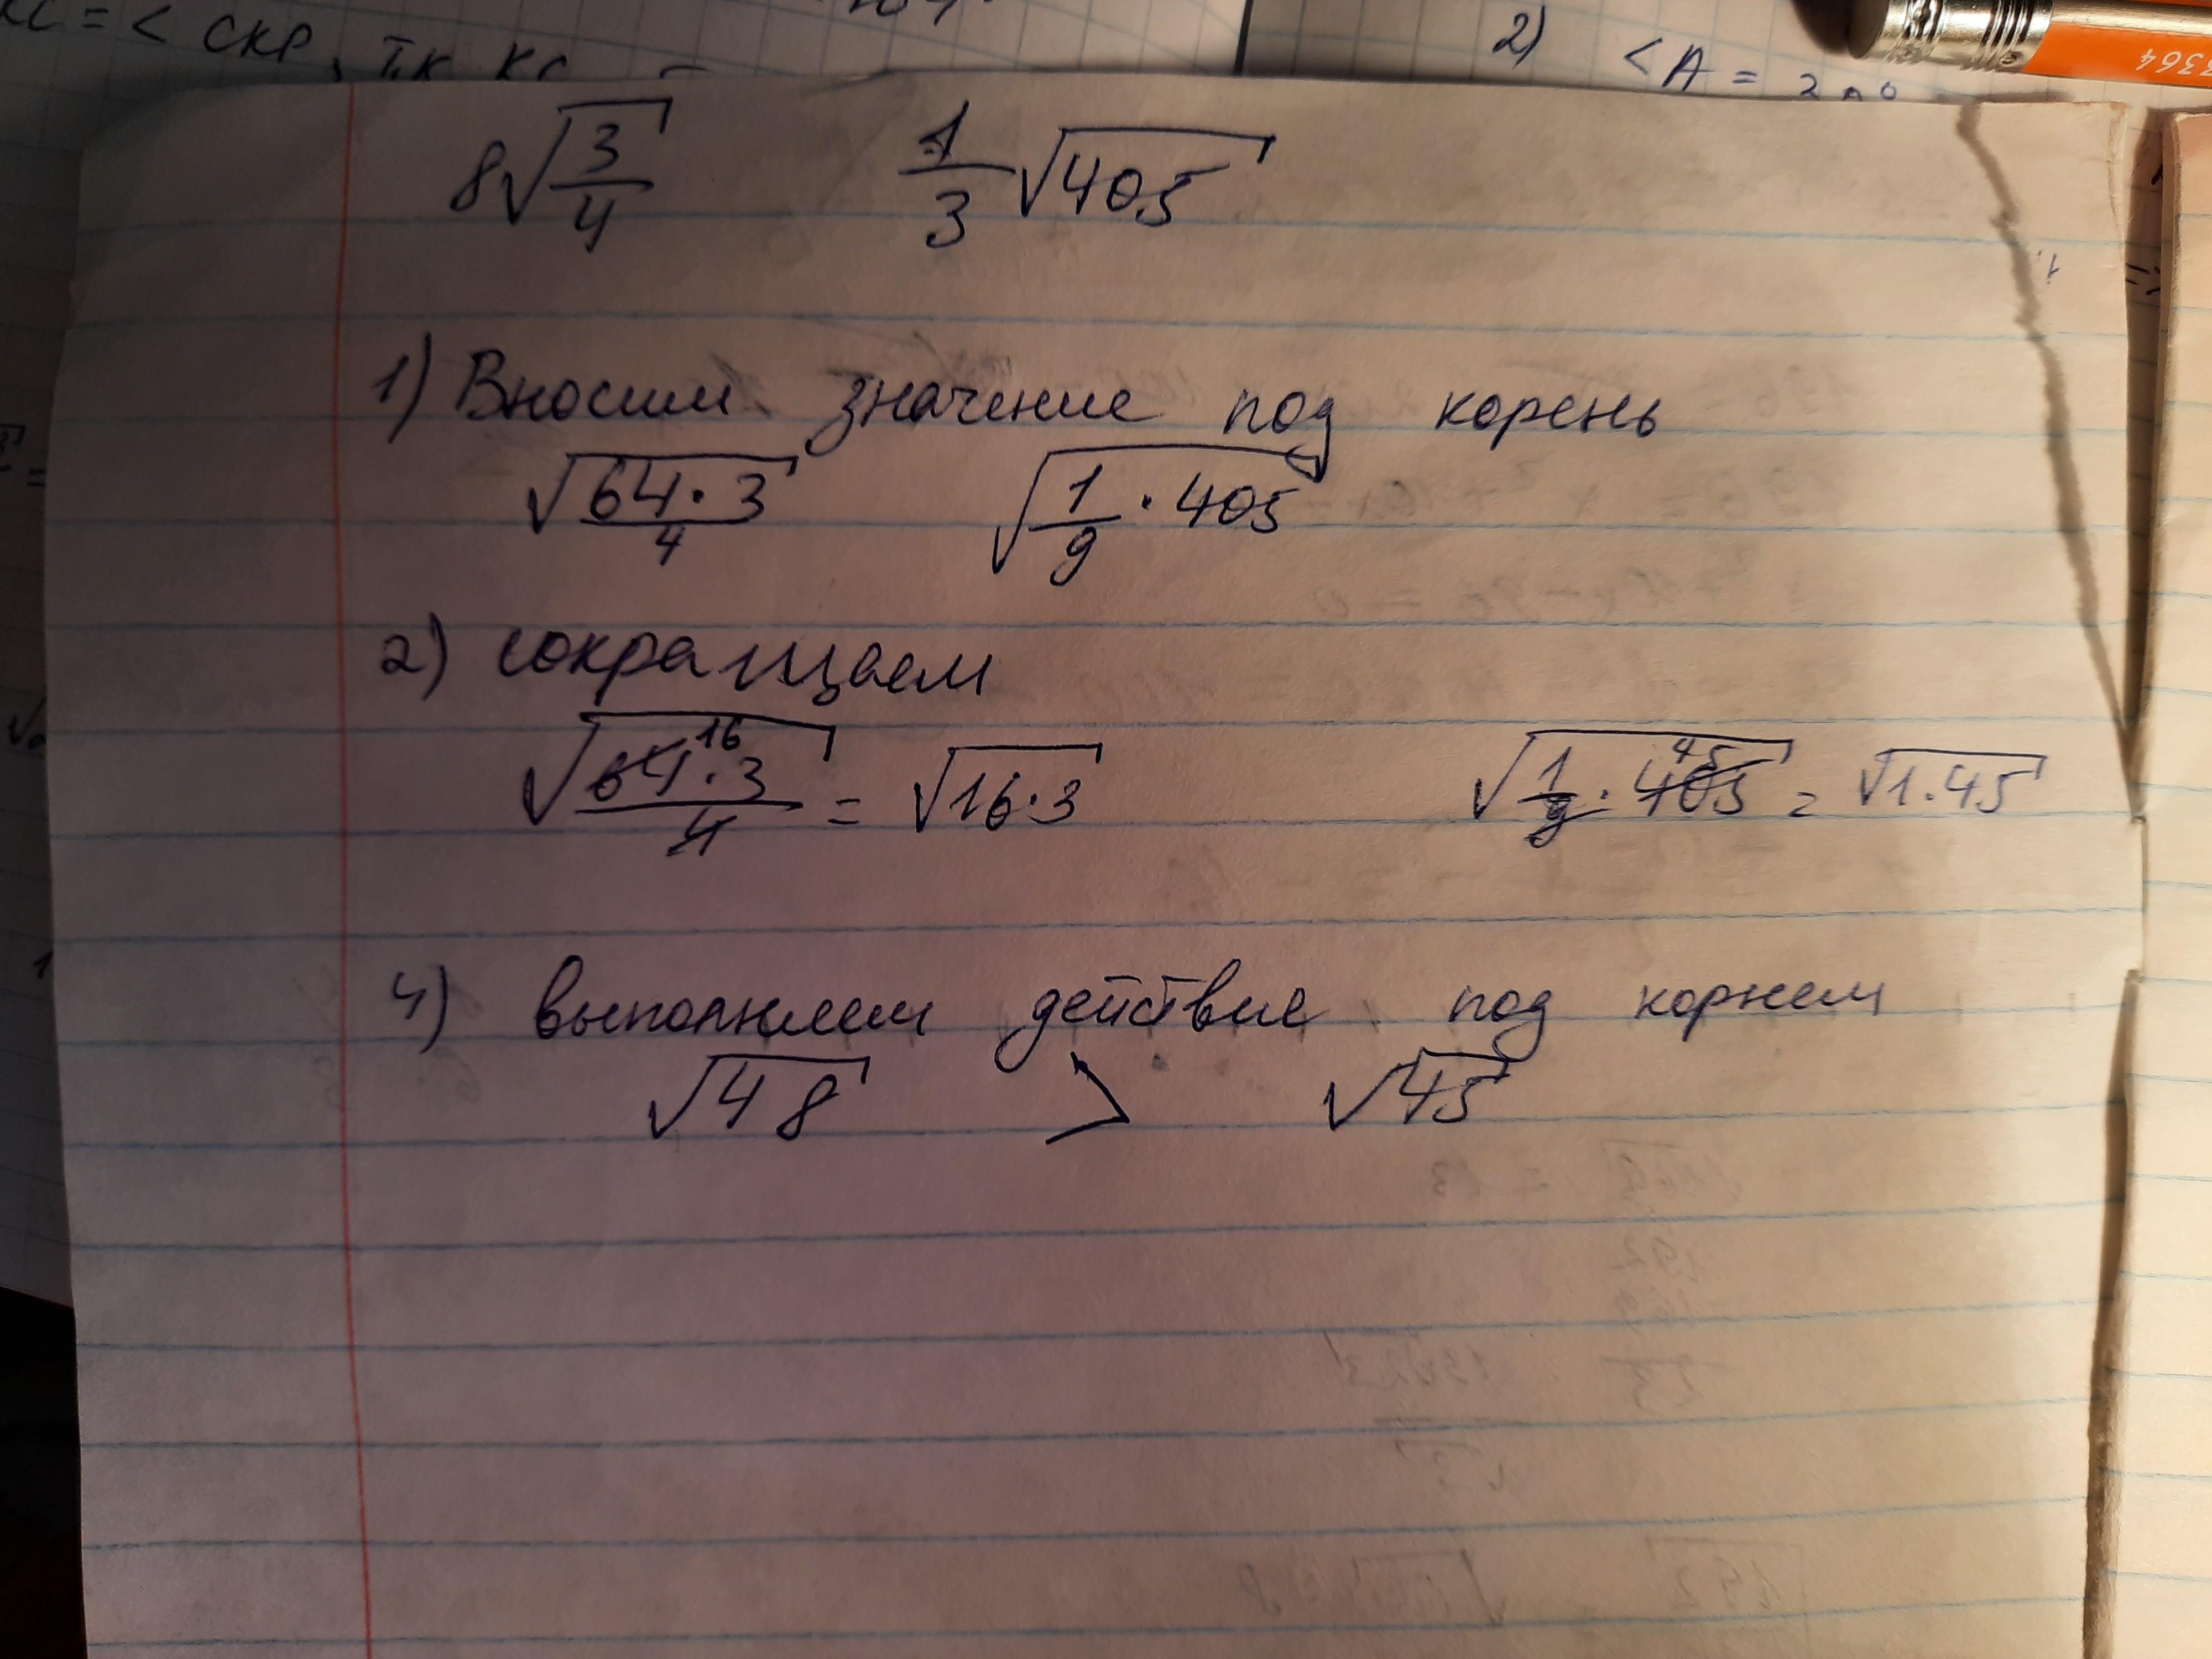 < СКР, т.к КС
2) <A =
3364
8√(3/4) 1/3√405
1) Вносим значение под корень
√(64·3/4) √(1/9 · 405)
2) сокращаем
√(64·3/4) 16 = √16·3 √(1/9 · 405) 45 = √1·45
4) выполняем действие под корнем
√48 > √45